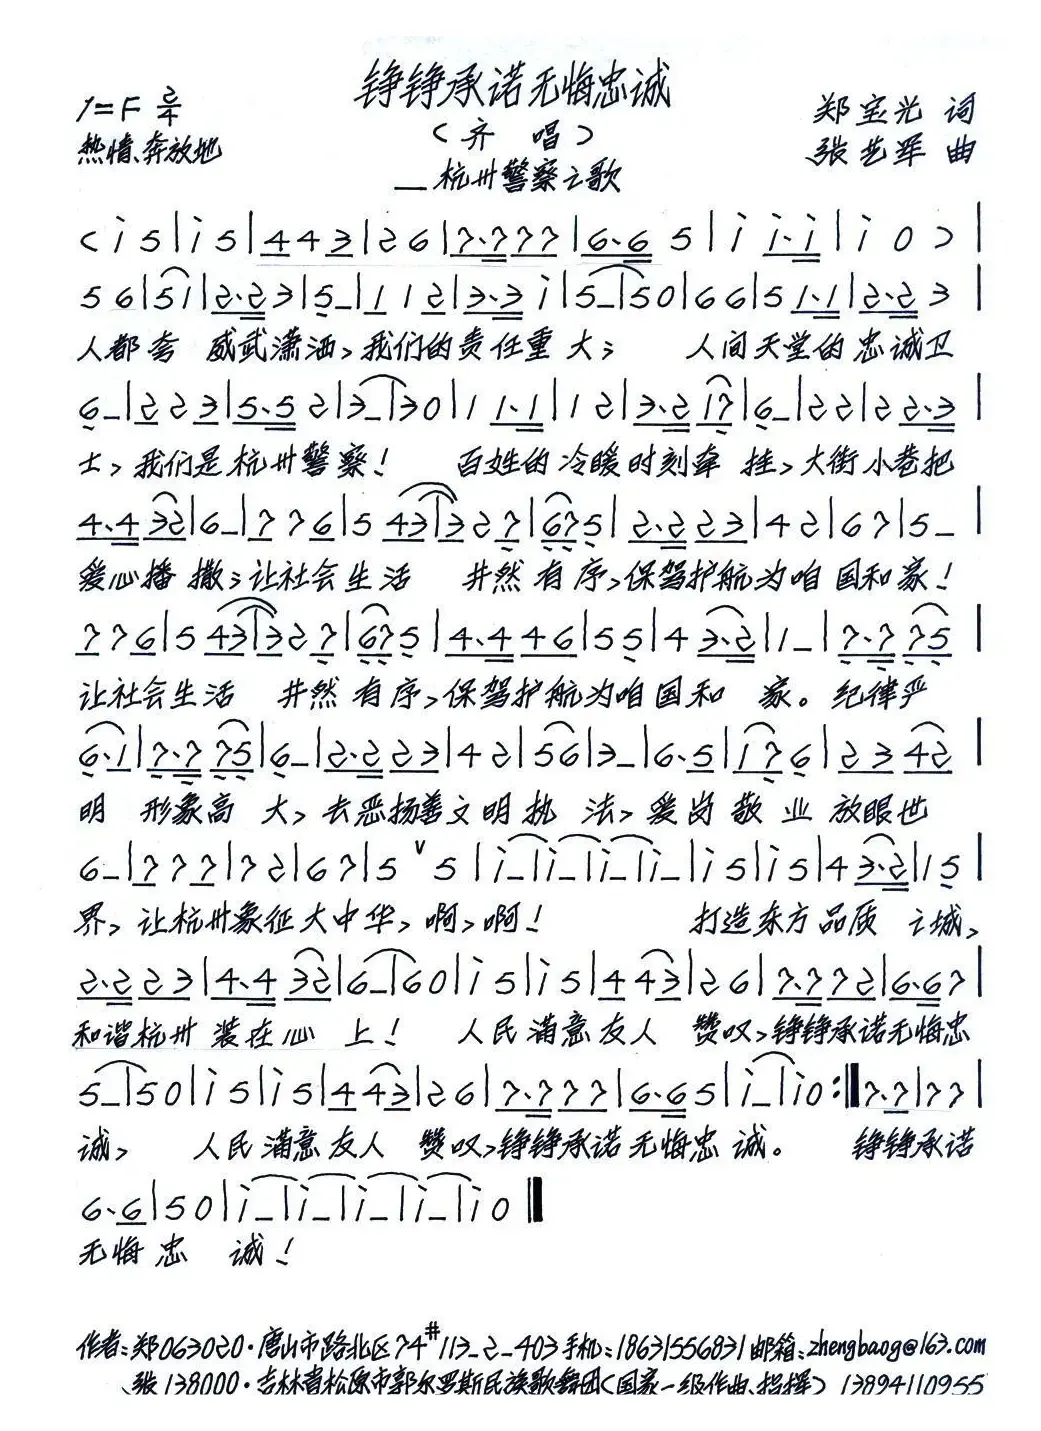 铮铮承诺无悔忠诚
1=F 2/4
（齐 唱）
郑宝光 词
热情、奔放地
张艺军 曲
—杭州警察之歌
人都夸 威武潇洒，我们的责任重大； 人间天堂的忠诚卫
士，我们是杭州警察！ 百姓的冷暖时刻牵 挂，大街小巷把
爱心播 撒；让社会生活 井然有序，保驾护航为咱国和家！
让社会生活 井然有序，保驾护航为咱国和 家。纪律严
明 形象高 大，去恶扬善文明执 法，爱岗敬业放眼世
界，让杭州象征大中华，啊，啊！ 打造东方品质 之城，
和谐杭州 装在心 上！ 人民满意友人 赞叹，铮铮承诺无悔忠
诚， 人民满意友人 赞叹，铮铮承诺无悔忠诚。 铮铮承诺
无悔忠 诚！
作者：郑063020·唐山市路北区74#113—2—403手机：18631556831邮箱：zhengbaog@163.com
、张138000·吉林省松原市郭尔罗斯民族歌舞团（国家一级作曲、指挥）13894110955